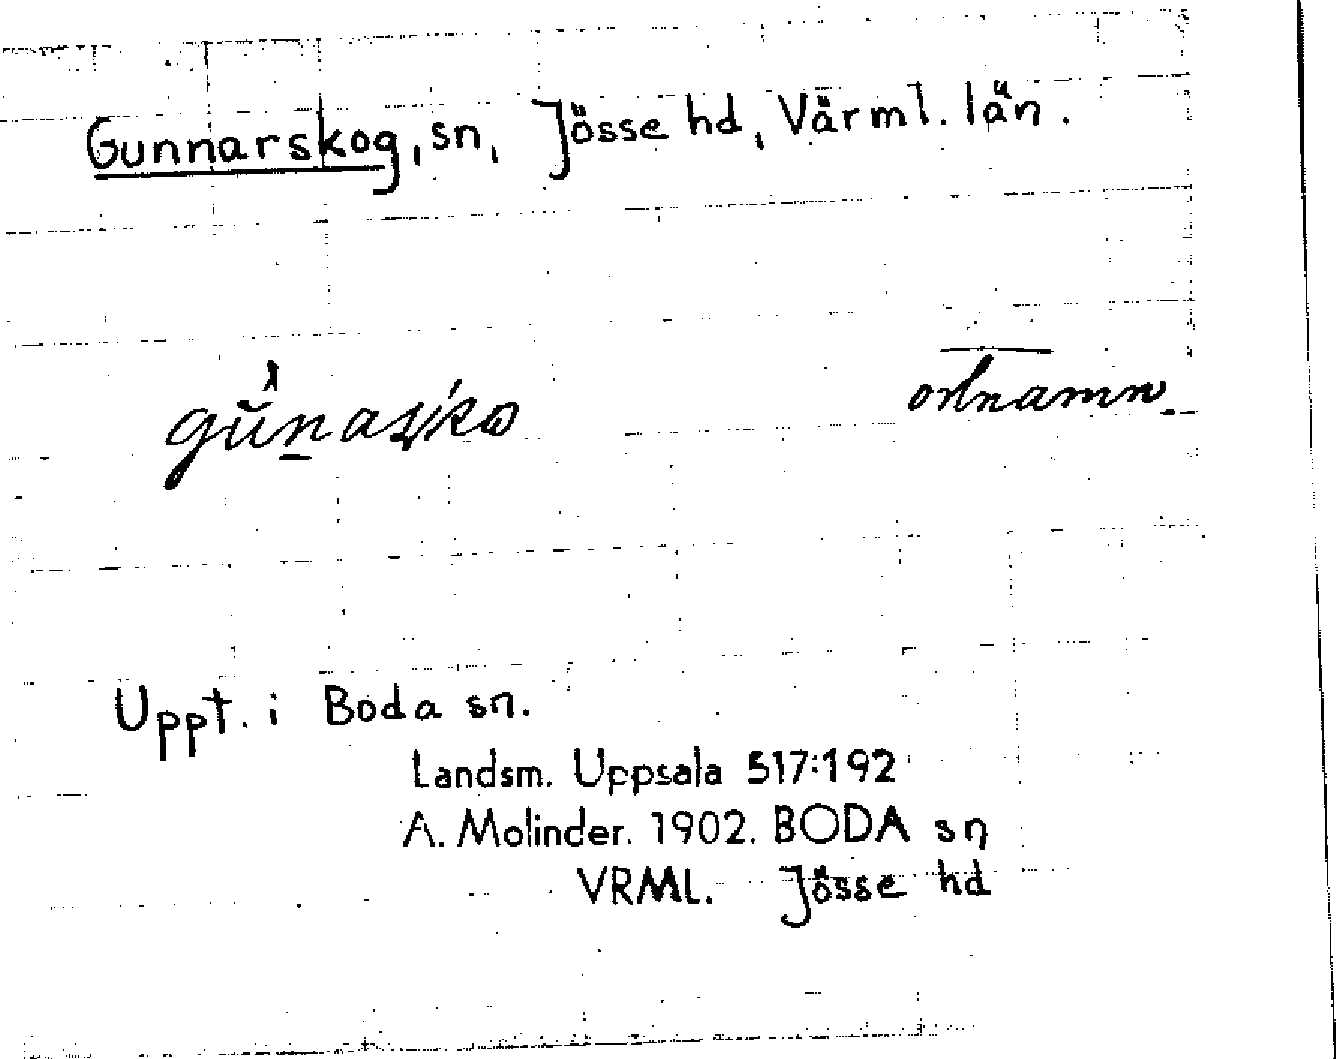 Gunnarskog, sn, Jösse hd, Värml. län.
ortnamn
Uppt. i Boda sn.
Landsm. Uppsala 517:192
A. Molinder. 1902. BODA sn
VRML. Jösse hd